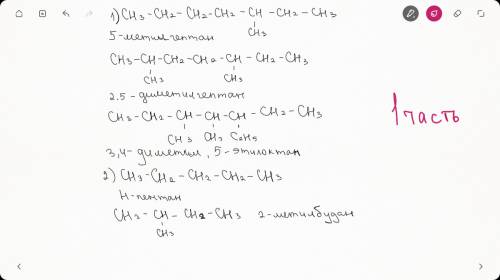 1) CH3 – CH2 – CH2 – CH2 – CH – CH2 – CH3
CH3
5-метилгептан
CH3 – CH – CH2 – CH2 – CH – CH2 – CH3
CH3 CH3
2.5 - диметилгептан
CH3 – CH2 – CH – CH – CH – CH2 – CH3
CH3 CH3 C2H5
3,4- диметил, 5 - этилоктан
1 часть
2) CH3 – CH2 – CH2 – CH2 – CH3
Н-пентан
CH3 – CH – CH2 – CH3 2-метилбудан
CH3